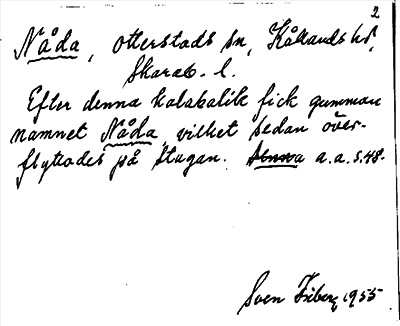 2
Nåda, Otterstads sn, Kållands hd,
Skarab. l.
Efter denna kalabalik fick gumman
namnet Nåda, vilket sedan över-
flyttades på stugan. a.a.s.48.
Sven Friberg 1955